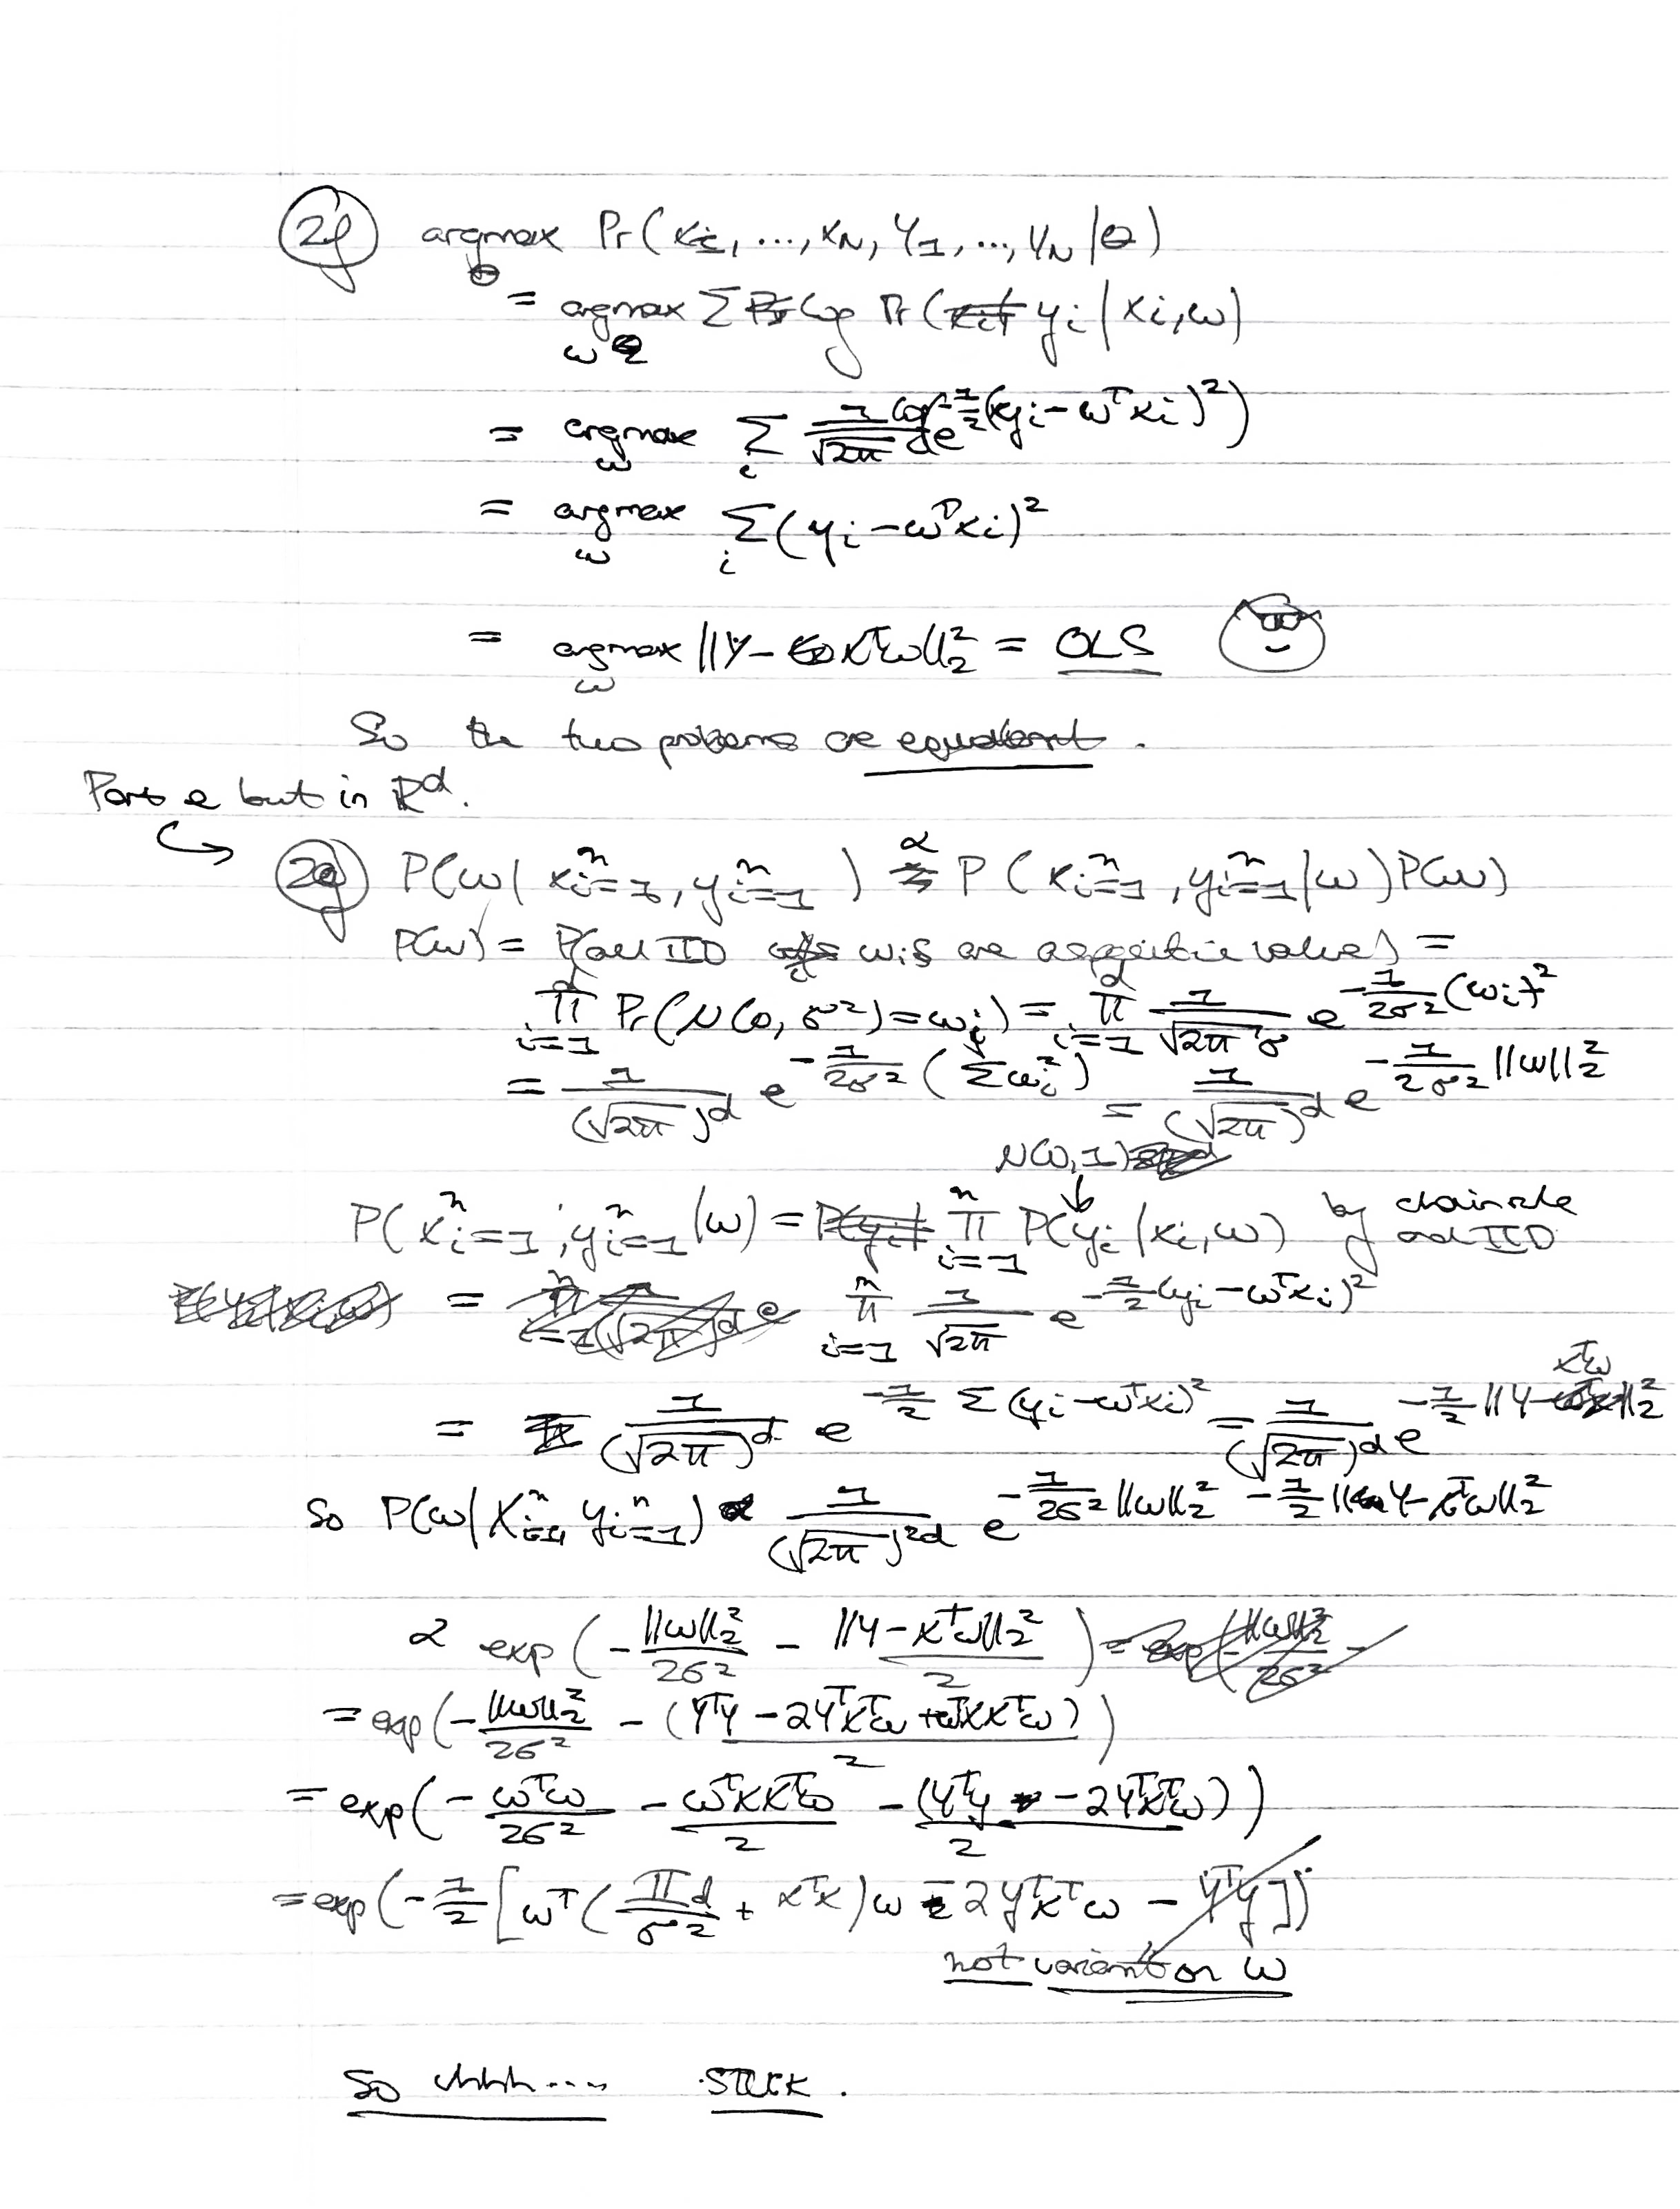 2f argmax_θ Pr(x_i, ..., x_N, Y_1, ..., Y_N | θ)
= argmax_ω Σ log Pr(y_i | x_i, ω)
= argmax_ω Σ_i log 1/√2π e^{-1/2 (y_i - ω^T x_i)^2})
= argmax_ω Σ_i (y_i - ω^T x_i)^2
= argmax_ω ||Y - X^T ω||_2^2 = OLS
So the two problems are equivalent.
Part e but in R^d.
2g P(ω | x_{i=1}^n, y_{i=1}^n) ∝ P(x_{i=1}^n, y_{i=1}^n | ω) P(ω)
P(ω) = P(all IID ω_i's are a specific value) =
∏_{i=1}^d Pr(N(0, σ^2) = ω_i) = ∏_{i=1}^d 1/(√2π σ) e^{-1/2σ^2 (ω_i)^2}
= 1/(√2π)^d e^{-1/2σ^2 (Σ ω_i^2)} = 1/(√2π)^d e^{-1/2σ^2 ||ω||_2^2}
N(0, 1)
P(x_{i=1}^n, y_{i=1}^n | ω) = ∏_{i=1}^n P(y_i | x_i, ω) by chain rule and IID
= ∏_{i=1}^n 1/√2π e^{-1/2 (y_i - ω^T x_i)^2}
= 1/(√2π)^d e^{-1/2 Σ (y_i - ω^T x_i)^2} = 1/(√2π)^d e^{-1/2 ||Y - X^T ω||_2^2}
So P(ω | X_{i=1}^n y_{i=1}^n) ∝ 1/(√2π)^{2d} e^{-1/2σ^2 ||ω||_2^2 - 1/2 ||Y - X^T ω||_2^2}
∝ exp(-||ω||_2^2/2σ^2 - ||Y - X^T ω||_2^2/2)
= exp(-||ω||_2^2/2σ^2 - (Y^T Y - 2Y^T X^T ω + ω^T X X^T ω)/2)
= exp(-ω^T ω/2σ^2 - ω^T X X^T ω/2 - (Y^T y - 2Y^T X^T ω)/2)
= exp(-1/2 [ω^T (I_d/σ^2 + X^T X) ω - 2 y^T X^T ω - Y^T y])
not variant on ω
So uhhh.... STUCK.